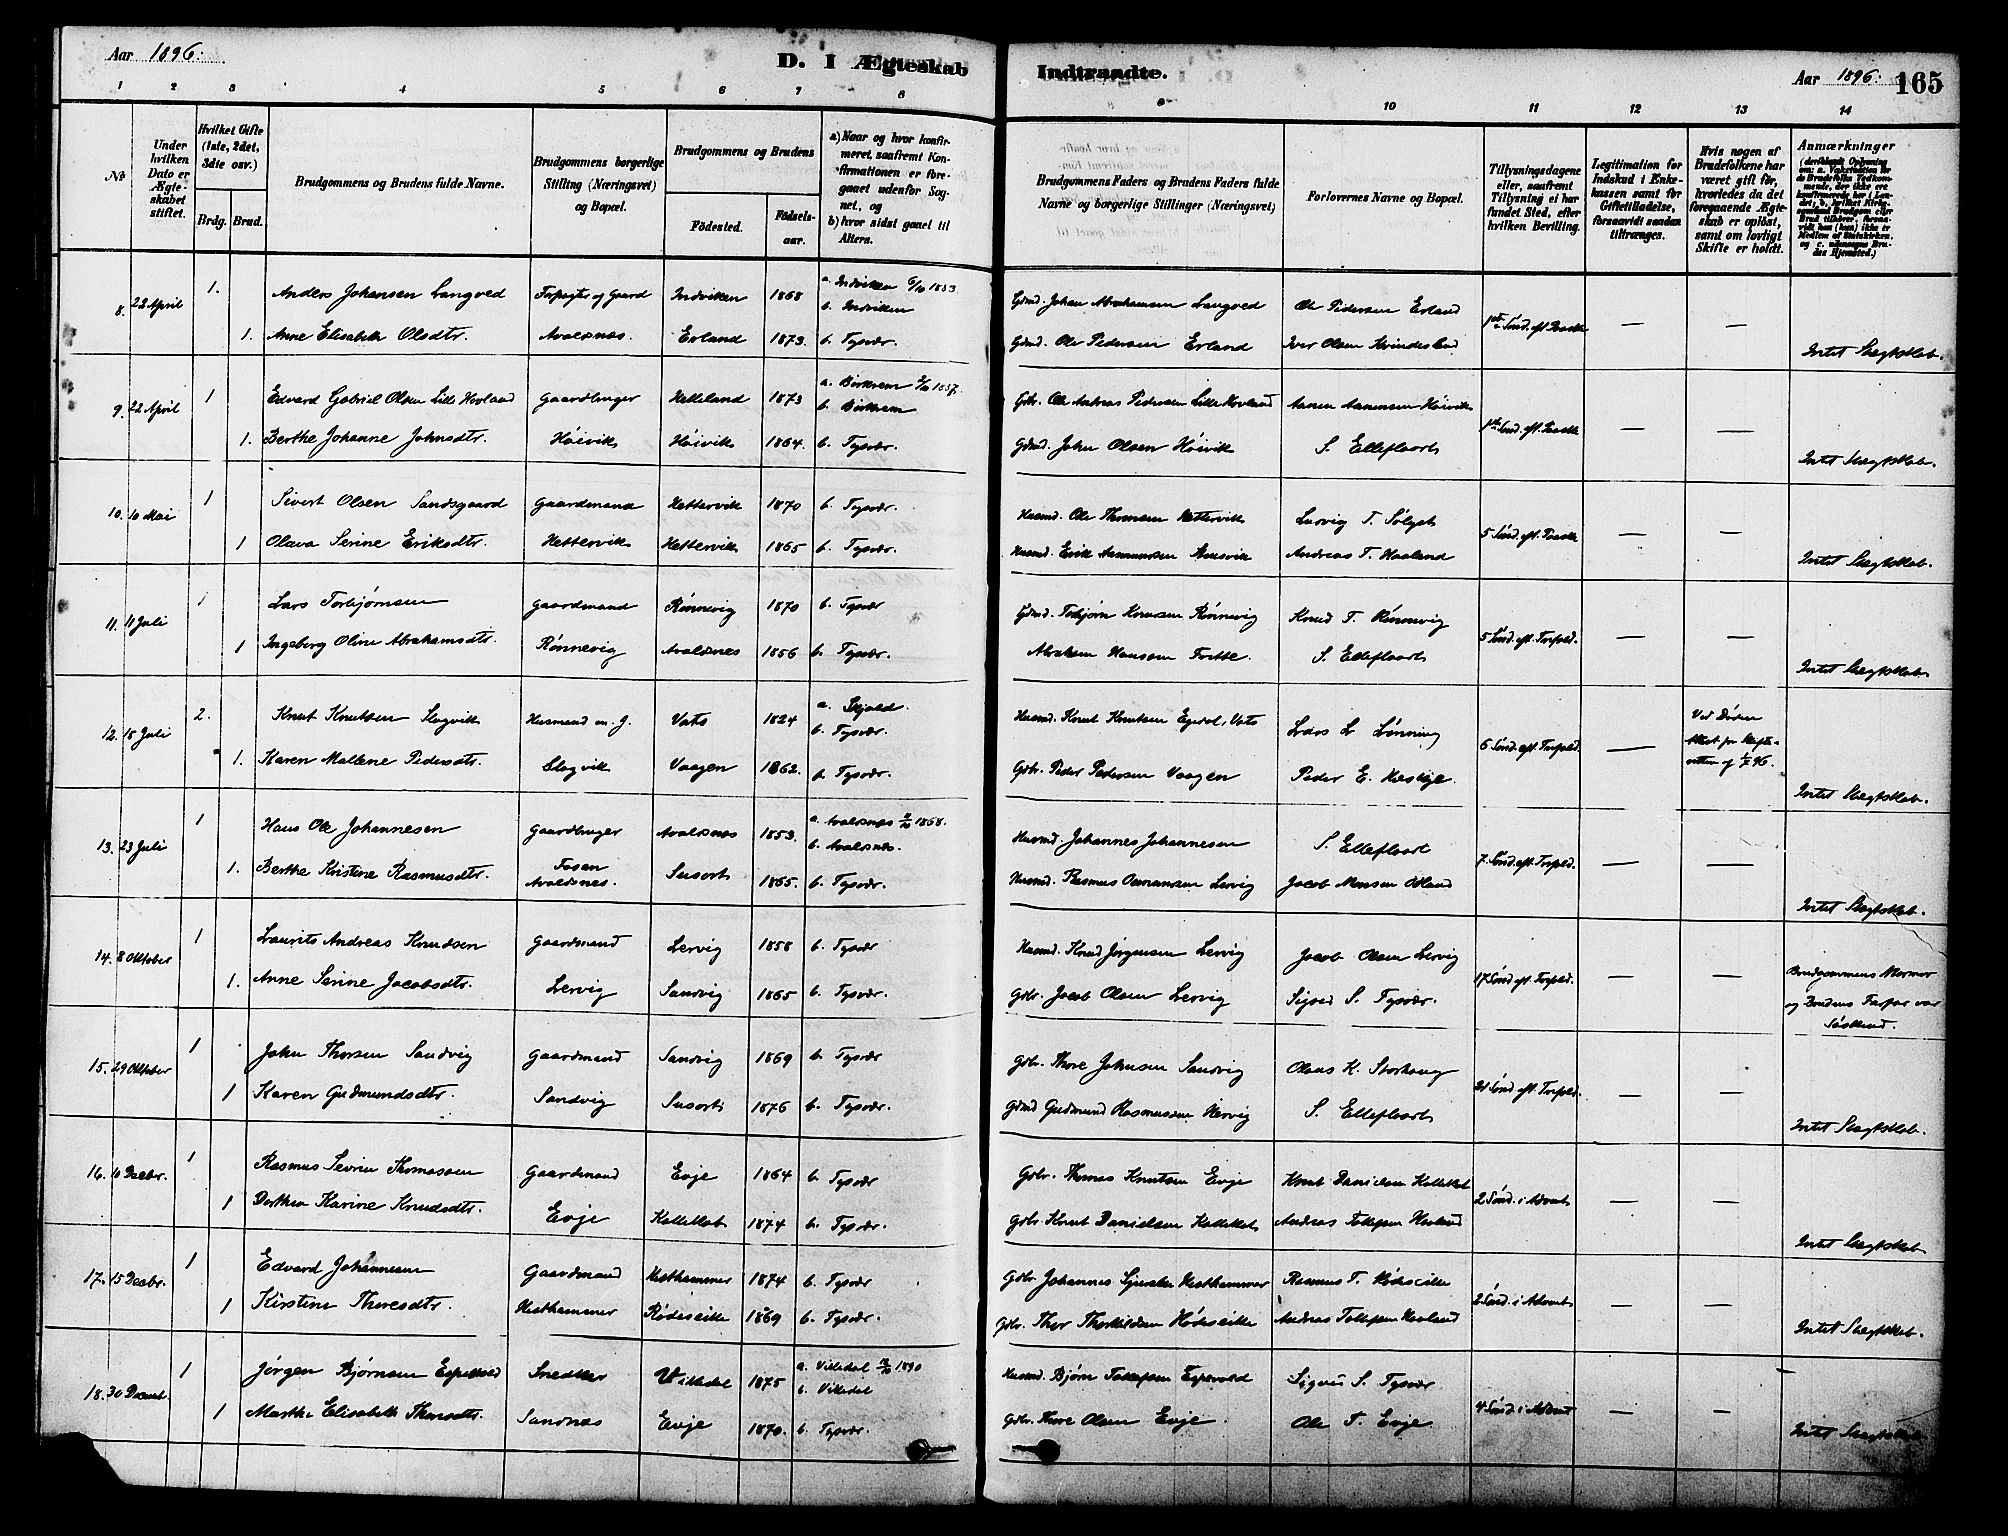 Aar 1896.
D. I Ægteskab Indtraadte.
Aar 1896. 165
1 2 3 4 5 6 7 8 9 10 11 12 13 14
No
Under hvilken Dato er Ægteskabet stiftet.
Hvilket Gifte (1ste, 2det, 3die osv.)
Brdg. Brud.
Brudgommens og Brudens fulde Navne.
Brudgommens borgerlige Stilling (Næringsvei) og Bopæl.
Brudgommens og Brudens
Fødested. Fødselsaar.
a) Naar og hvor konfirmeret, saafremt Konfirmationen er foregaaet udenfor Sognet, og
b) hvor sidst gaaet til Alters.
Brudgommens Faders og Brudens Faders fulde Navne og borgerlige Stillinger (Næringsvei)
Forlovernes Navne og Bopæl.
Tillysningsdagene eller, saafremt Tillysning ei har fundet Sted, efter hvilken Bevilling.
Legitimation for Indskud i Enkekassen samt for Giftetilladelse, forsaavidt saadan tiltrænges.
Hvis nogen af Brudefolkene har været gift før, hvorledes da det foregaaende Ægteskab er opløst, samt om lovligt Skifte er holdt.
Anmærkninger
8. 22 April 1. Anders Johansen Langved Forpagter og Gaard Indviken 1868 a. Indviken 1883 b. Indviken Gdmd. Johan Abrahamsen Langved Ole Pedersen Erland
1. Anne Elisabeth Olsdtr. Avaldsnæs Erland 1873. b. Tysvær. Gdmd. Ole Pedersen Erland Iver Olsen Kvindesland 1ste Sønd. eft. Paaske — — Intet Slægtskab.
9. 22 April 1 Edvard Gabriel Olsen Lille Hovland Gaardbruger Helleland 1873 a. Birkrem 1887. b. Birkrem Gdbr. Ole Andreas Pedersen Lille Hovland Aanen Aanensen Høivik
1. Berthe Johanne Johnsdtr. Høivik Høivik 1864. b. Tysvær. Gdmd. John Olsen Høivik S. Elleflaart 1ste Sønd. eft. Paaske — — Intet Slægtskab.
10. 10 Mai 1 Sivert Olsen Sandsgaard Gaardmand Hettervik 1870 b. Tysvær. Husmd. Ole Thomsen Hettervik Lurvig T. Sølgst
1 Olava Serine Eriksdtr. Hettervik Hettervik 1865 b. Tysvær. Husmd. Erik Aanensen Andreas T. Haaland 5 Sønd. eft. Paaske — — Intet Slægtskab.
11. 11 Juli 1 Lars Torbjørnsen Gaardmand Rønnevig 1870 b. Tysvær Gdmd. Torbjørn Knudsen Rønnevig Knud T. Rønnevig
1 Ingeborg Oline Abrahamsdtr. Rønnevig Avaldsnes 1856 b. Tysvær. Abraham Hansen Trette. S. Elleflaart 5 Sønd. eft. Trefold. — — Intet Slægtskab.
12. 15 Juli 2. Knut Knutsen Slogvik Husmand m. J. Vats 1824 a. Skjold. b. Tysvær. Husmd. Knut Knutsen Egedal, Vats Lars L. Lønning
1. Karen Mallene Pedersdtr. Slogvik Vaagen 1862. b. Tysvær. Gdbr. Peder Pedersen Vaagen Peder E. Hestøje 6 Sønd. eft. Trefold. — Ved Døden Attest fra Skifteretten af 96. Intet Slægtskab.
13. 23 Juli 1 Hans Ole Johannesen Gaardbruger Avaldsnæs 1853. a. Avaldsnæs 1868. b. Avaldsnæs. Husmd. Johannes Johannesen S. Elleflaart
1. Berthe Kristine Rasmusdtr. Fosen Avaldsnes. Susort 1865. b. Tysvær. Husmd. Rasmus Osmunsen Lervig Jacob Monsen Odland 7. Sønd. eft. Trefold. — — Intet Slægtskab.
14. 8 Oktober 1 Laurits Andreas Knudsen Gaardmand Lervig 1858 b. Tysvær Husmd. Knud Jørgensen Lervig Jacob Olsen Lervig
1. Anne Serine Jacobsdtr. Lervig Sandvig 1865 b. Tysvær. Gdbr. Jacob Olsen Lervig Sigved S. Tysvær. 17 Sønd. eft. Trefold. — — Brudgommens Mormor og Brudens Farfar var Søskend.
15. 29 Oktober 1 John Thorsen Sandvig Gaardmand Sandvig 1869 b. Tysvær Gdbr. Thore Johnsen Sandvig Olaus K. Storhaug
1 Karen Gudmundsdtr. Sandvig Susort 1876 b. Tysvær. Gdmd Gudmund Rasmussen Hervig S. Elleflaart 21 Sønd. eft. Trefold. — — Intet Slægtskab.
16. 10 Decbr. 1 Rasmus Sevrin Thomassen Gaardmand Evje 1864 b. Tysvær Gdbr. Thomas Knutsen Evje Knut Danielsen Kallekot
1 Dorthea Karine Knudsdtr. Evje Kallekot 1874 b. Tysvær. Gdbr. Knut Danielsen Kallekot Andreas Tollefsen Hovland 2 Sønd. i Advent — — Intet Slægtskab.
17. 15 Decbr. 1 Edvard Johannesen Gaardmand Hesthammer 1874 b. Tysvær Gdbr. Johannes Sjursen Hesthammer Rasmus T. Rødseikke
1 Kirstine Thoresdtr. Hesthammer Rødeseikke 1869 b. Tysvær. Gdbr. Thor Thorkildsen Rødeseikke Andreas Tollefsen Hovland 2 Sønd. i Advent — — Intet Slægtskab.
18. 30 Decbr. 1 Jørgen Bjørnsen Espevold Snedker Vikedal 1875 a. Vikedal 1890 b. Vikedal Husmd. Bjørn Tollefsen Espevold Sigved S. Tysvær
1 Marthe Elisabeth Thoresdtr. Sandnæs Evje 1870. b. Tysvær. Gdbr. Thore Olsen Evje. Ole T. Evje. 4 Sønd. i Advent — — Intet Slægtskab